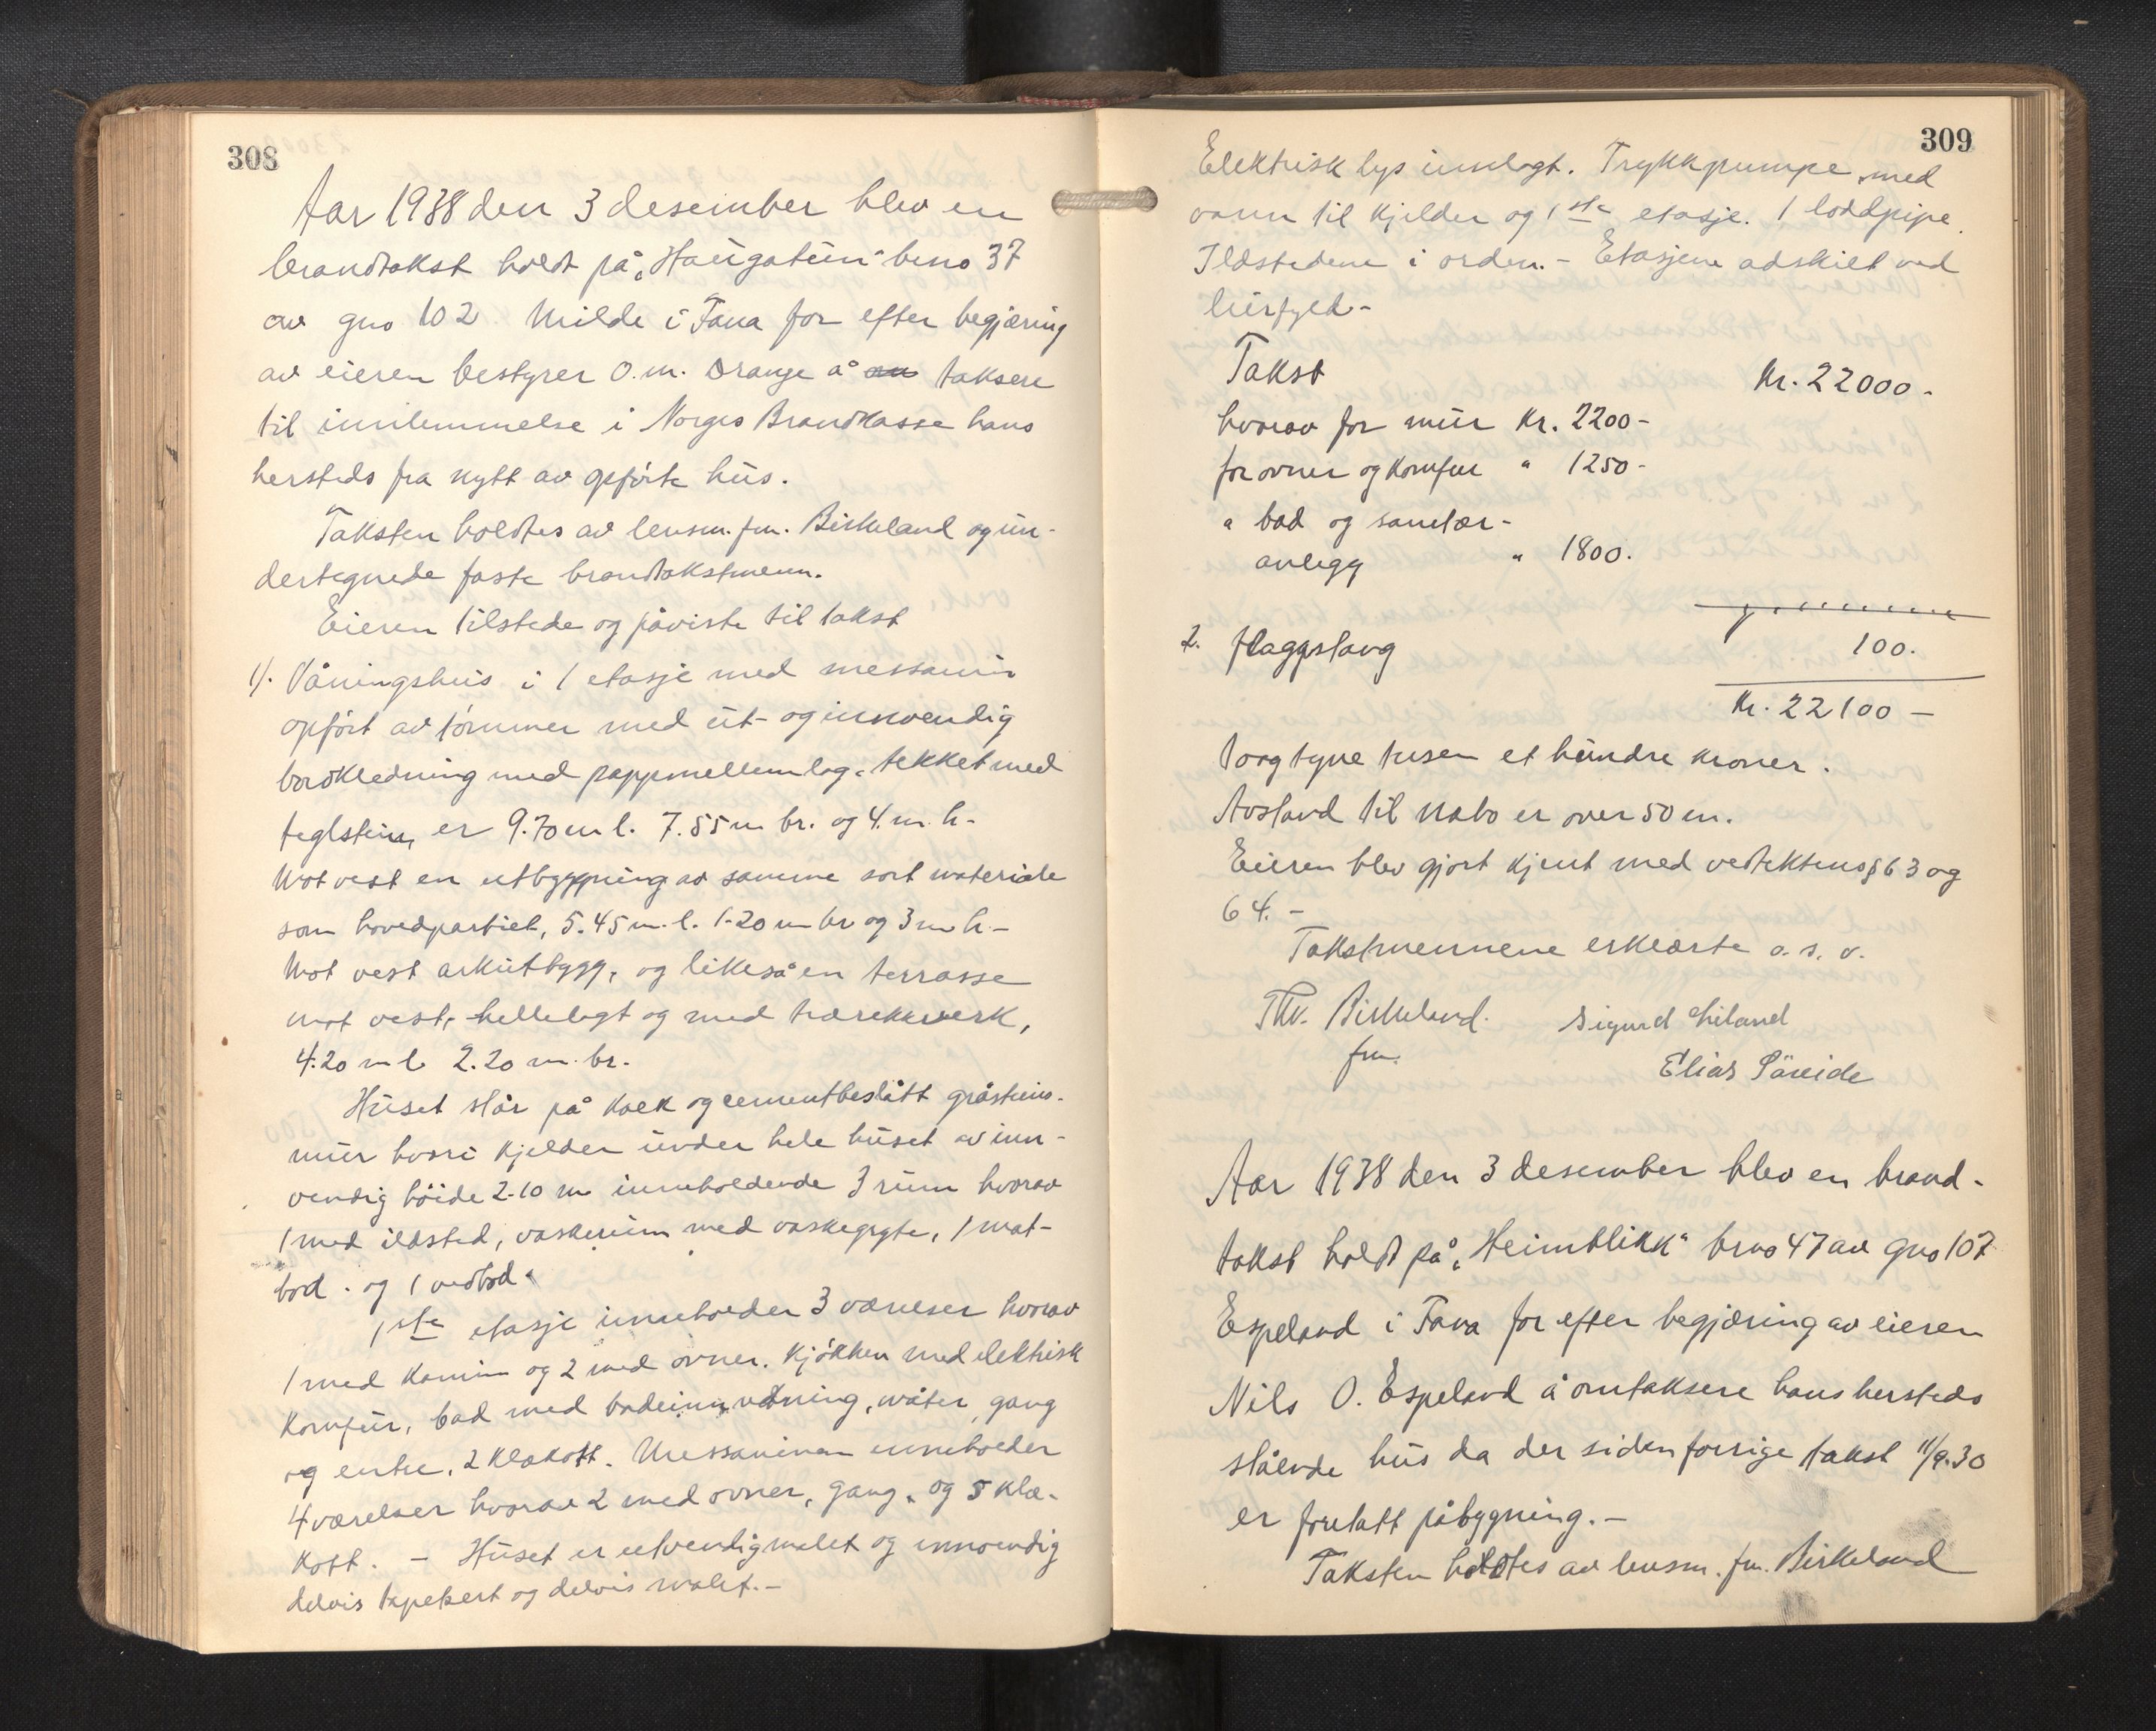 308
Aar 1938 den 3 desember blev en
brandtakst holdt på „Haugatun" bno 37
av gno 102 Milde i Fana for efter begjæring
av eieren bestyrer O.M. Drange å taksere
til innlemmelse i Norges Brandkasse hans
hersteds fra nytt av opførte hus.
Taksten holdtes av lensm. fm. Birkeland og un-
dertegnede faste brandtakstmenn.
Eieren tilstede og påviste til takst
1). Våningshus i 1 etasje med messanin
opført av tømmer med ut- og innvendig
bordkledning med pappmellemlag, tekket med
teglstein, er 9.70 m l. 7.55 m br. og 4. m. h.
Mot vest en utbyggning av samme sort materiale
som hovedpartiet, 5.45 m. l. 1.20 m br og 3 m h. -
Mot vest arkutbygg, og likeså en terrasse
mot vest, hellelagt og med trærekkverk,
4.20 m l 2.20 m. br.
Huset står på kalk og cementbeslått gråsteins-
mur hvori kjelder under hele huset av inn-
vendig høide 2.10 m inneholdende 3 rum hvorav
1 med ildsted, vaskerum med vaskegryte, 1 mat-
bod. og 1 vedbod.
1ste etasje inneholder 3 værelser hvorav
1 med kamin og 2 med ovner. Kjøkken med elektrisk
komfur, bad med badeinnretning, wåter, gang
og entre, 2 klækott. Messaninen inneholder
4 værelser hvorav 2 med ovner, gang, og 5 klæ-
kott. - Huset er utvendig malet og innvendig
delvis tapetsert og delvis malet. -
309
Elektrisk lys innlagt. Trykkpumpe med
vann til kjelder og 1ste etasje. 1 loddpipe.
Ildstedene i orden. - Etasjene adskilt ved
leirfyld -
Takst Kr. 22000 -
hvorav for mur Kr. 2200 -
for ovner og komfur " 1250 -
" bad og sanetær-
anlegg " 1800.
2. Flaggstang 100.
Kr. 22100 -
toogtyve tusen et hundre kroner.
Avstand til nabo er over 50 m.
Eieren blev gjort kjent med vedtektens § 63 og
64. -
Takstmennene erklærte o. s. v.
Thv. Birkeland. Sigurd Liland
fm.
Elias Søreide
Aar 1938 den 3 desember blev en brand-
takst holdt på „Heimblikk" brno 47 av gno 107
Espeland i Fana for efter begjæring av eieren
Nils O. Espeland å omtaksere hans hersteds
stående hus da der siden forrige takst 11/9.30
er foretatt påbygning. -
Taksten holdtes av lensm. fm. Birkeland